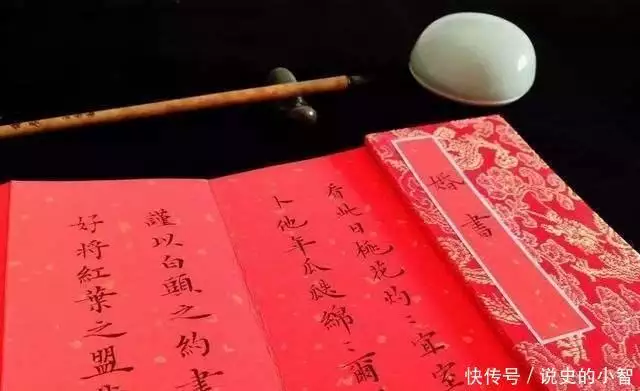 婚書
看此日桃花灼〻宜室
卜他年瓜瓞綿〻爾
謹以白頭之約書
好將紅葉之盟
快传号／说史的小智